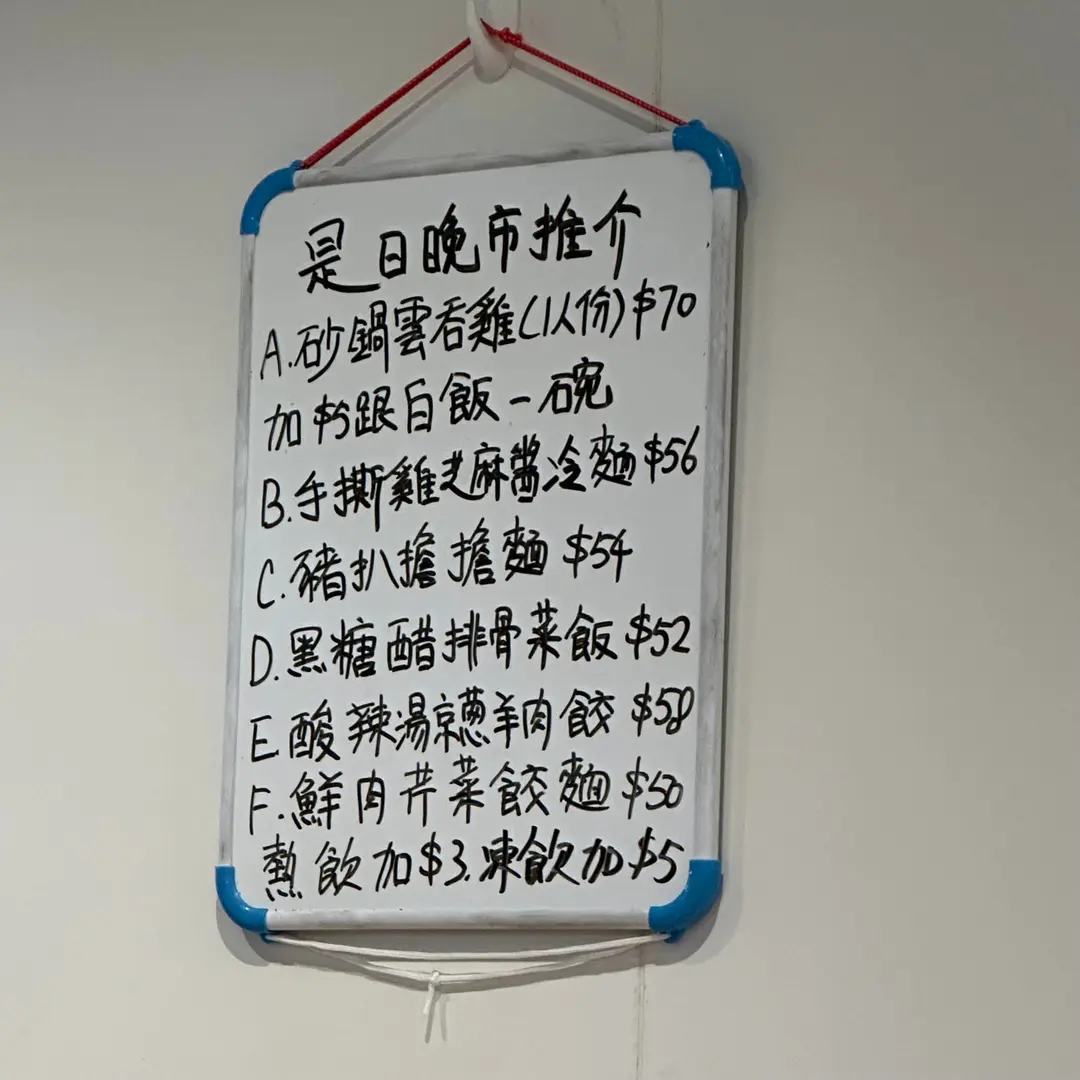 是日晚市推介
A.砂鍋雲吞雞(1人份)$70
加$5跟白飯一碗
B.手撕雞芝麻醬冷麵$56
C.豬扒擔擔麵 $54
D.黑糖醋排骨菜飯$52
E.酸辣湯京葱羊肉餃 $58
F.鮮肉芹菜餃麵$50
熱飲加$3.凍飲加$5